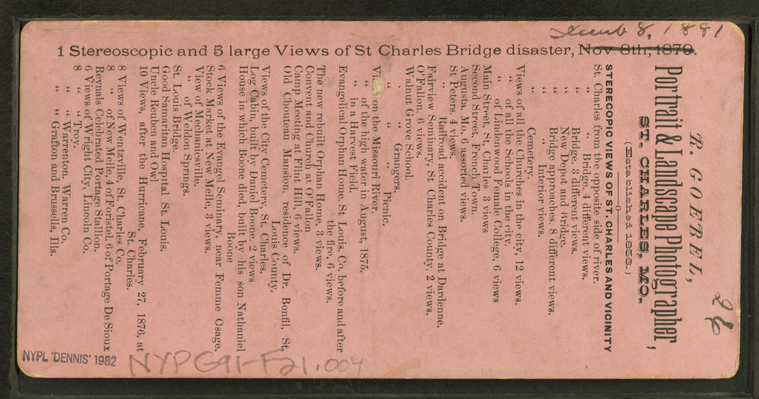 Decemb 8, 1881
1 Stereoscopic and 5 large Views of St Charles Bridge disaster, Nov. 8th, 1879.
R. GOEBEL,
Portrait & Landscape Photographer,
ST. CHARLES, MO.
(Established 1856.)
26
STEREOPIC VIEWS OF ST. CHARLES AND VICINITY
St. Charles from the opposite side of river.
" Bridge, 4 different views.
" Bridge, 3 different views.
" New Depot and Bridge.
" Bridge approaches, 8 different views.
" " Interior views.
" Cemetery.
Views of all the Churches in the city, 12 views.
" of all the Schools in the city.
" of Lindenwood Female College, 6 views
Main Street, St. Charles 3 views
Second Street, French Town.
Augusta, Mo, 6 assorted views.
St Peters, 4 views.
" Railroad accident on Bridge at Dardenne.
Fairview Seminary, St. Charles County, 2 views.
O'Fallon, 6 views.
Walnut Grove School.
" " Grangers.
" " Picnic.
Views on the Missouri River.
" of the high water in August, 1875.
" in a Harvest Field.
Evangelical Orphan Home, St. Louis, Co. before and after
the fire, 6 views.
The new rebuilt Orphan Home, 3 views.
Convent and Church at O'Fallon
Camp Meeting at Flint Hill, 6 views.
Old Chouteau Mansion, residence of Dr. Bonfil, St.
Louis County.
Views of the City Cemetery, St. Charles.
Log Cabin, built by Daniel Boone, 2 views
House in which Boone died, built by his son Nathaniel
Boone
6 Views of the Evangel Seminary, near Femme Osage.
Stock Market at New Melle, 3 views.
View of Hamburg,
" of Weldon Springs.
St. Louis Bridge.
Good Samaritan Hospital, St. Louis.
Uncle Reuben and Owl
10 Views, after the Hurricane, February 27, 1876, at
St. Charles.
8 Views of Wentzville, St. Charles Co.
8 " of New Melle, 4 of Foristel, 6 of Portage De Sioux
Reynals Celebrated Portage Stallion.
6 Views of Wright City, Lincoln Co.
8 " " Troy,
" " Warrenton, Warren Co.
" " Grafton and Brussells, Ills.
NYPL 'DENNIS' 1982
NYPG91-F21.004